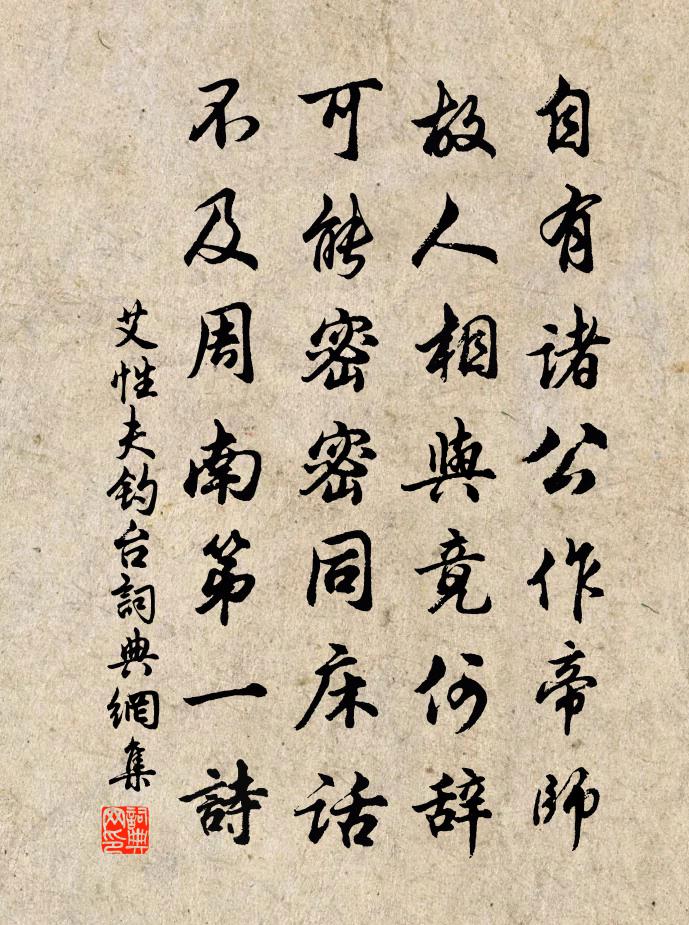 自有诸公作帝师
故人相與竟何辞
可能密密同床话
不及周南第一詩
艾性夫钓台詞典網集
詞典网印